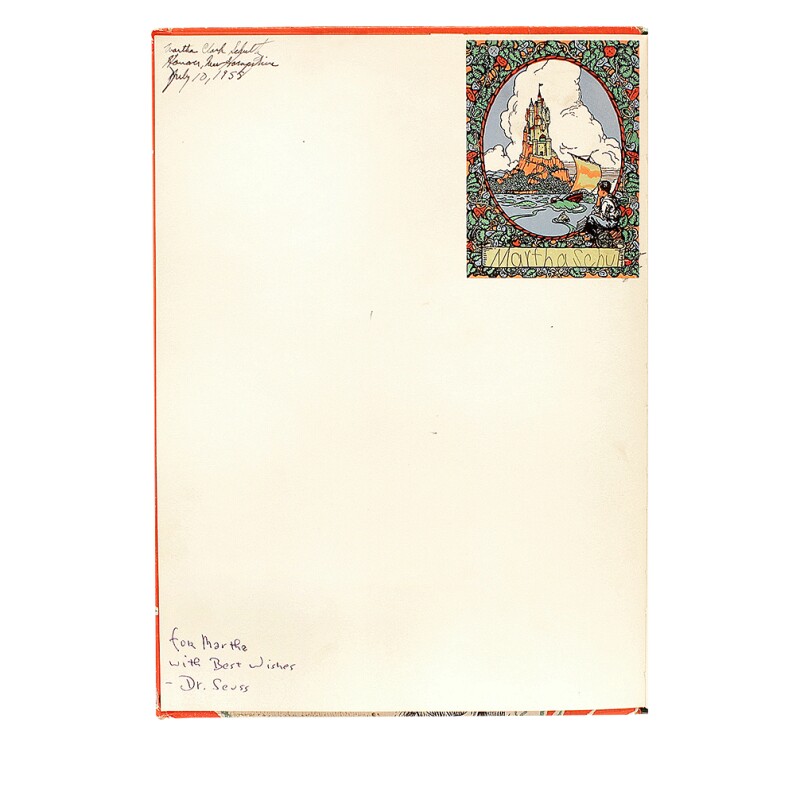 Martha Clark Schultz
Hanover, New Hampshire
July 10, 1955
Martha Schul
for Martha
with Best Wishes
- Dr. Seuss